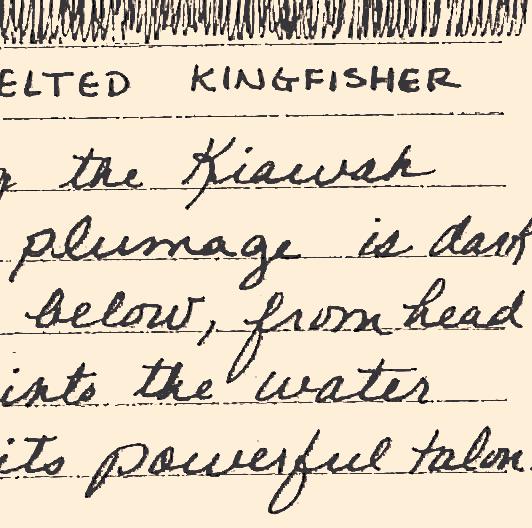 ELTED KINGFISHER
g the Kiawah
plumage is dark
below, from head
into the water
its powerful talon